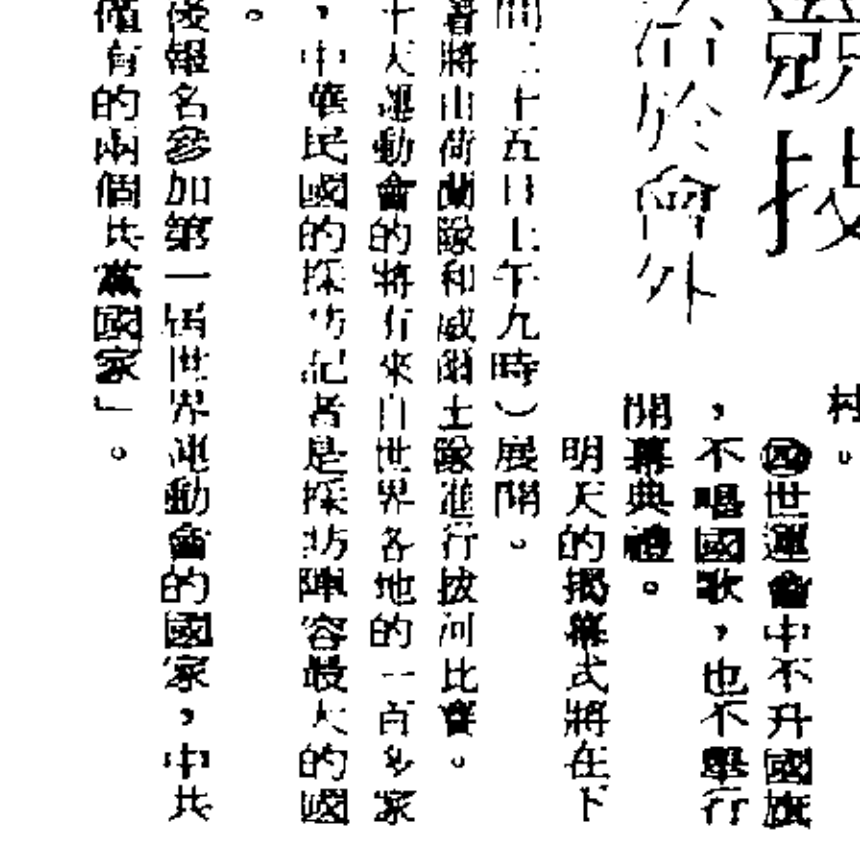 競技
於會外
村。
世運會中不升國旗
，不唱國歌，也不舉行
開幕典禮。
明天的揭幕式將在下
間二十五日上午九時）展開。
著將由荷蘭隊和威爾士隊進行拔河比賽。
十大運動會的將有來自世界各地的一百多家
，中華民國的採訪記者是採訪陣容最大的國
。
後報名參加第一屆世界運動會的國家，中共
僅有的兩個共黨國家」。